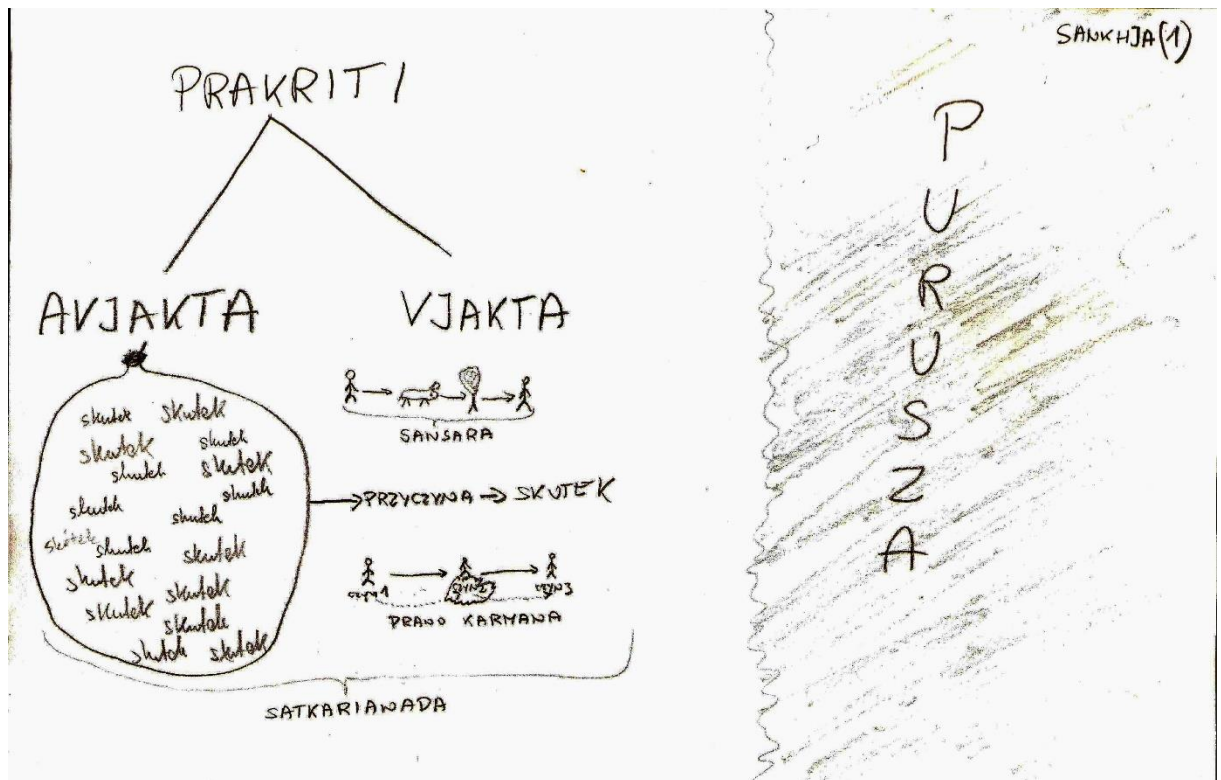 SANKHJA(1)
PRAKRITI
AVJAKTA
VJAKTA
skutek skutek
skutek skutek
skutek skutek
skutek
skutek skutek
skutek skutek skutek
skutek skutek
skutek skutek
skutek skutek
SANSARA
PRZYCZYNA → SKUTEK
CZYN1 CZYN2 CZYN3
PRAWO KARMANA
SATKARIANADA
PURUSZA